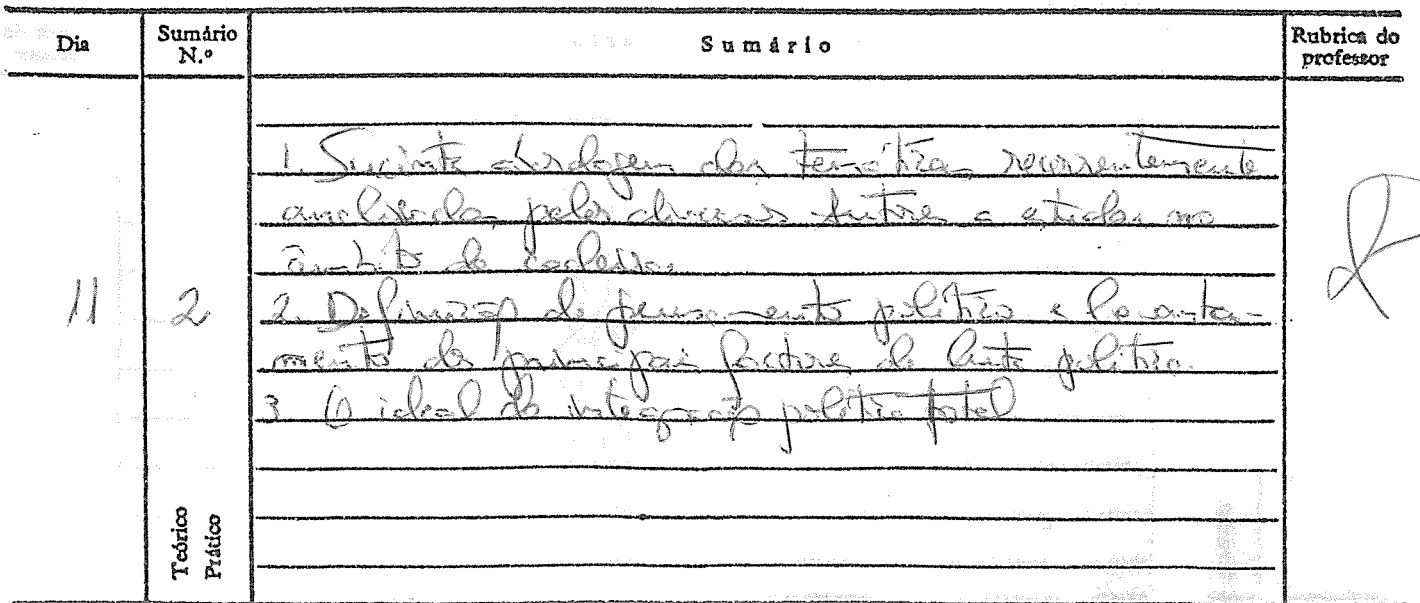 Dia
Sumário N.º
Sumário
Rubrica do professor
11
2
1. Sucinta abordagem das temáticas recorrentemente
analisadas pelos diversos autores a estudar no
âmbito da
2. Definição de pensamento político e levanta-
mento dos principais factores de luta política.
3. O ideal de integração política total
Teórico
Prático